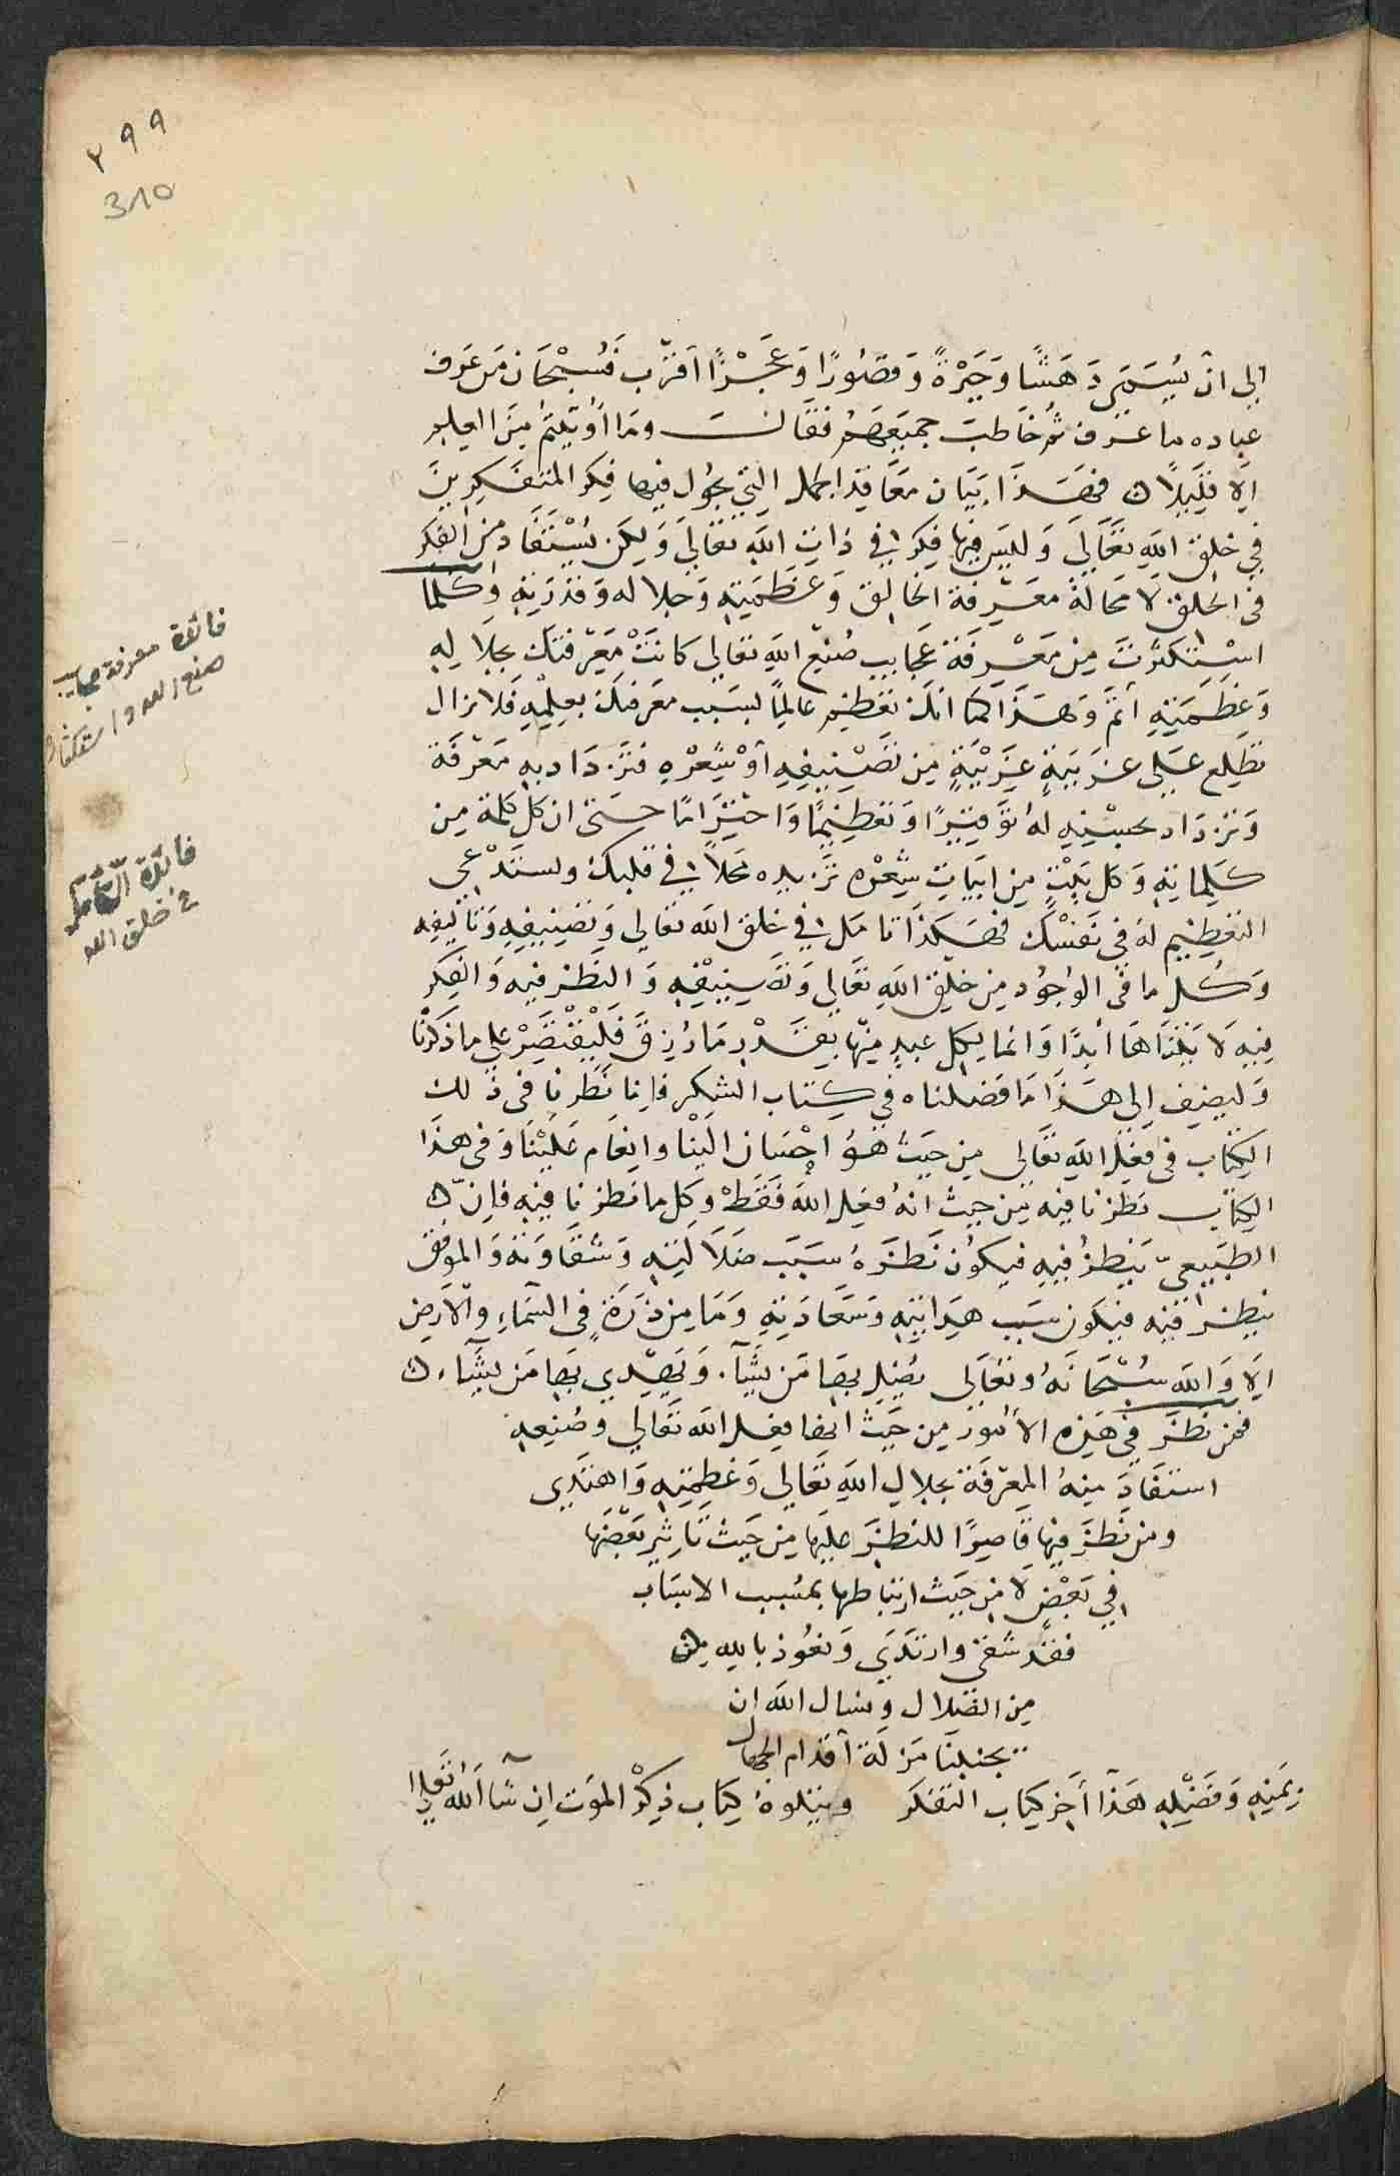 ٢٩٩
310
الى ان يُسَمَى دَهَشًا وَحَيْرَةً وَقصُورًا وَعَجْزًا اَقْرَب فَسُبْحَان مَن عَرف
عباده ما عَرف ثم خَاطبَ جميعَهُم فقَالَ وَمَا أُوتِيتُم مِنَ العِلم
اِلا قلِيلًا فهَذا بَيَان مَعَاقد الجمل التي يجُول فيها فِكر المتفكِرينَ
في خلق اللهِ تعَالَى وَليسَ فيها فِكر في ذات الله تعَالى وَلكن يُسْتَفاد من الفكر
في الخلق لا محَالةَ مَعرِفة الخالِق وَعظَمته وَجلاله وَقدْرَته وَكلمَا
اسْتكثرتَ مِن مَعْرِفَة عَجايب صُنع اللهِ تعَالى كانَتْ مَعرِفتك بجلالِهِ
وَعظمَتِهِ أتمَّ وَهَذا كما انكَ تعَظِم عالِمًا بسَبب معَرفتك بعِلمِه فلا تزال
تطلِع عَلى غريبَةٍ غريبَةٍ مِن تَصنِيفِهِ أوْ شِعْرِهِ فتزدَاد به مَعْرفَة
وَتزدَاد بحسْنِه لهُ توقِيرًا وَتعْظِيمًا وَاحْترَامًا حتى ان كل كلمة مِن
كلماتِهِ وَكل بَيْتٍ مِن ابيَات شِعْره تزيده محَلاً في قلبك وتستَدْعي
التعظِيم لهُ في نَفسْك فهَكذا تامَل في خَلق الله تعَالى وَتصْنِيفِهِ وَتَاليفِه
وَكُل ما في الوُجُود مِن خلْق اللهِ تعَالى وَتصنِيفِهِ وَالنظر فيه وَالفِكر
فيه لا يتناهَا أبدًا وَانما لِكل عبد مِنْها بقَدْر مَا رُزِق فَلْيَقْتَصِرْ علي ما ذكرنا
وَليضِف اِلى هَذا ما فصلناه في كتاب الشكر فاِنا نَظرنا في ذلك
الكِتاب في فعْل اللهِ تعَالى مِن حَيث هُوَ اِحْسَان الَيْنا وانعَام عَلَيْنا وَفي هذا
الكتَاب نظرنا فيه مِن حيث انهُ فعل اللهَ فَقطْ وَكل ما نظرنا فيه فاِنّ
الطبِيعيّ يَنظرُ فيهِ فيكُون نَظرَهُ سَبَب ضَلاَلتِهِ وَشقاوَته وَالموفق
ينظر فيه فيكون سَبَب هِدَايَتِهِ وَسَعَادَتِهِ وَمَا مِن ذرّةٍ في السَمَاءِ والأرضِ
اِلاَ وَالله سُبْحَانَهُ وتعَالى يُضِل بهَا مَن يشَآء وَيَهدي بهَا مَن يشَآء
فمن نَظر في هَذِه الأمُور مِن حَيث انها فعل الله تعَالى وصُنعِه
استفَادَ مِنهُ المعْرفَة بجلالِ الله تعَالى وَعظمَتِه وَاهتَدى
ومن نظر فيها قاصِرًا للنظر عليها مِن حَيث تاثير بَعْضهَا
في بَعْض لا مِن حَيث ارتباطها بمسبب الاسبَاب
فقد شَقى وارتَدَي وَنعُوذ بالله من
مِن الضلال ونسال الله ان
يجنبنَا مَزلة أقدام الجهال
بمَنِهِ وَفضْلِه هَذا آخِر كتاب التفكر ويتلوهُ كتاب ذِكرْ الموَت اِن شَا الله تعَالى
فائدة معرفة عجايب
صنع الله واستكثارها
فائدة التأمّل
في خلق الله